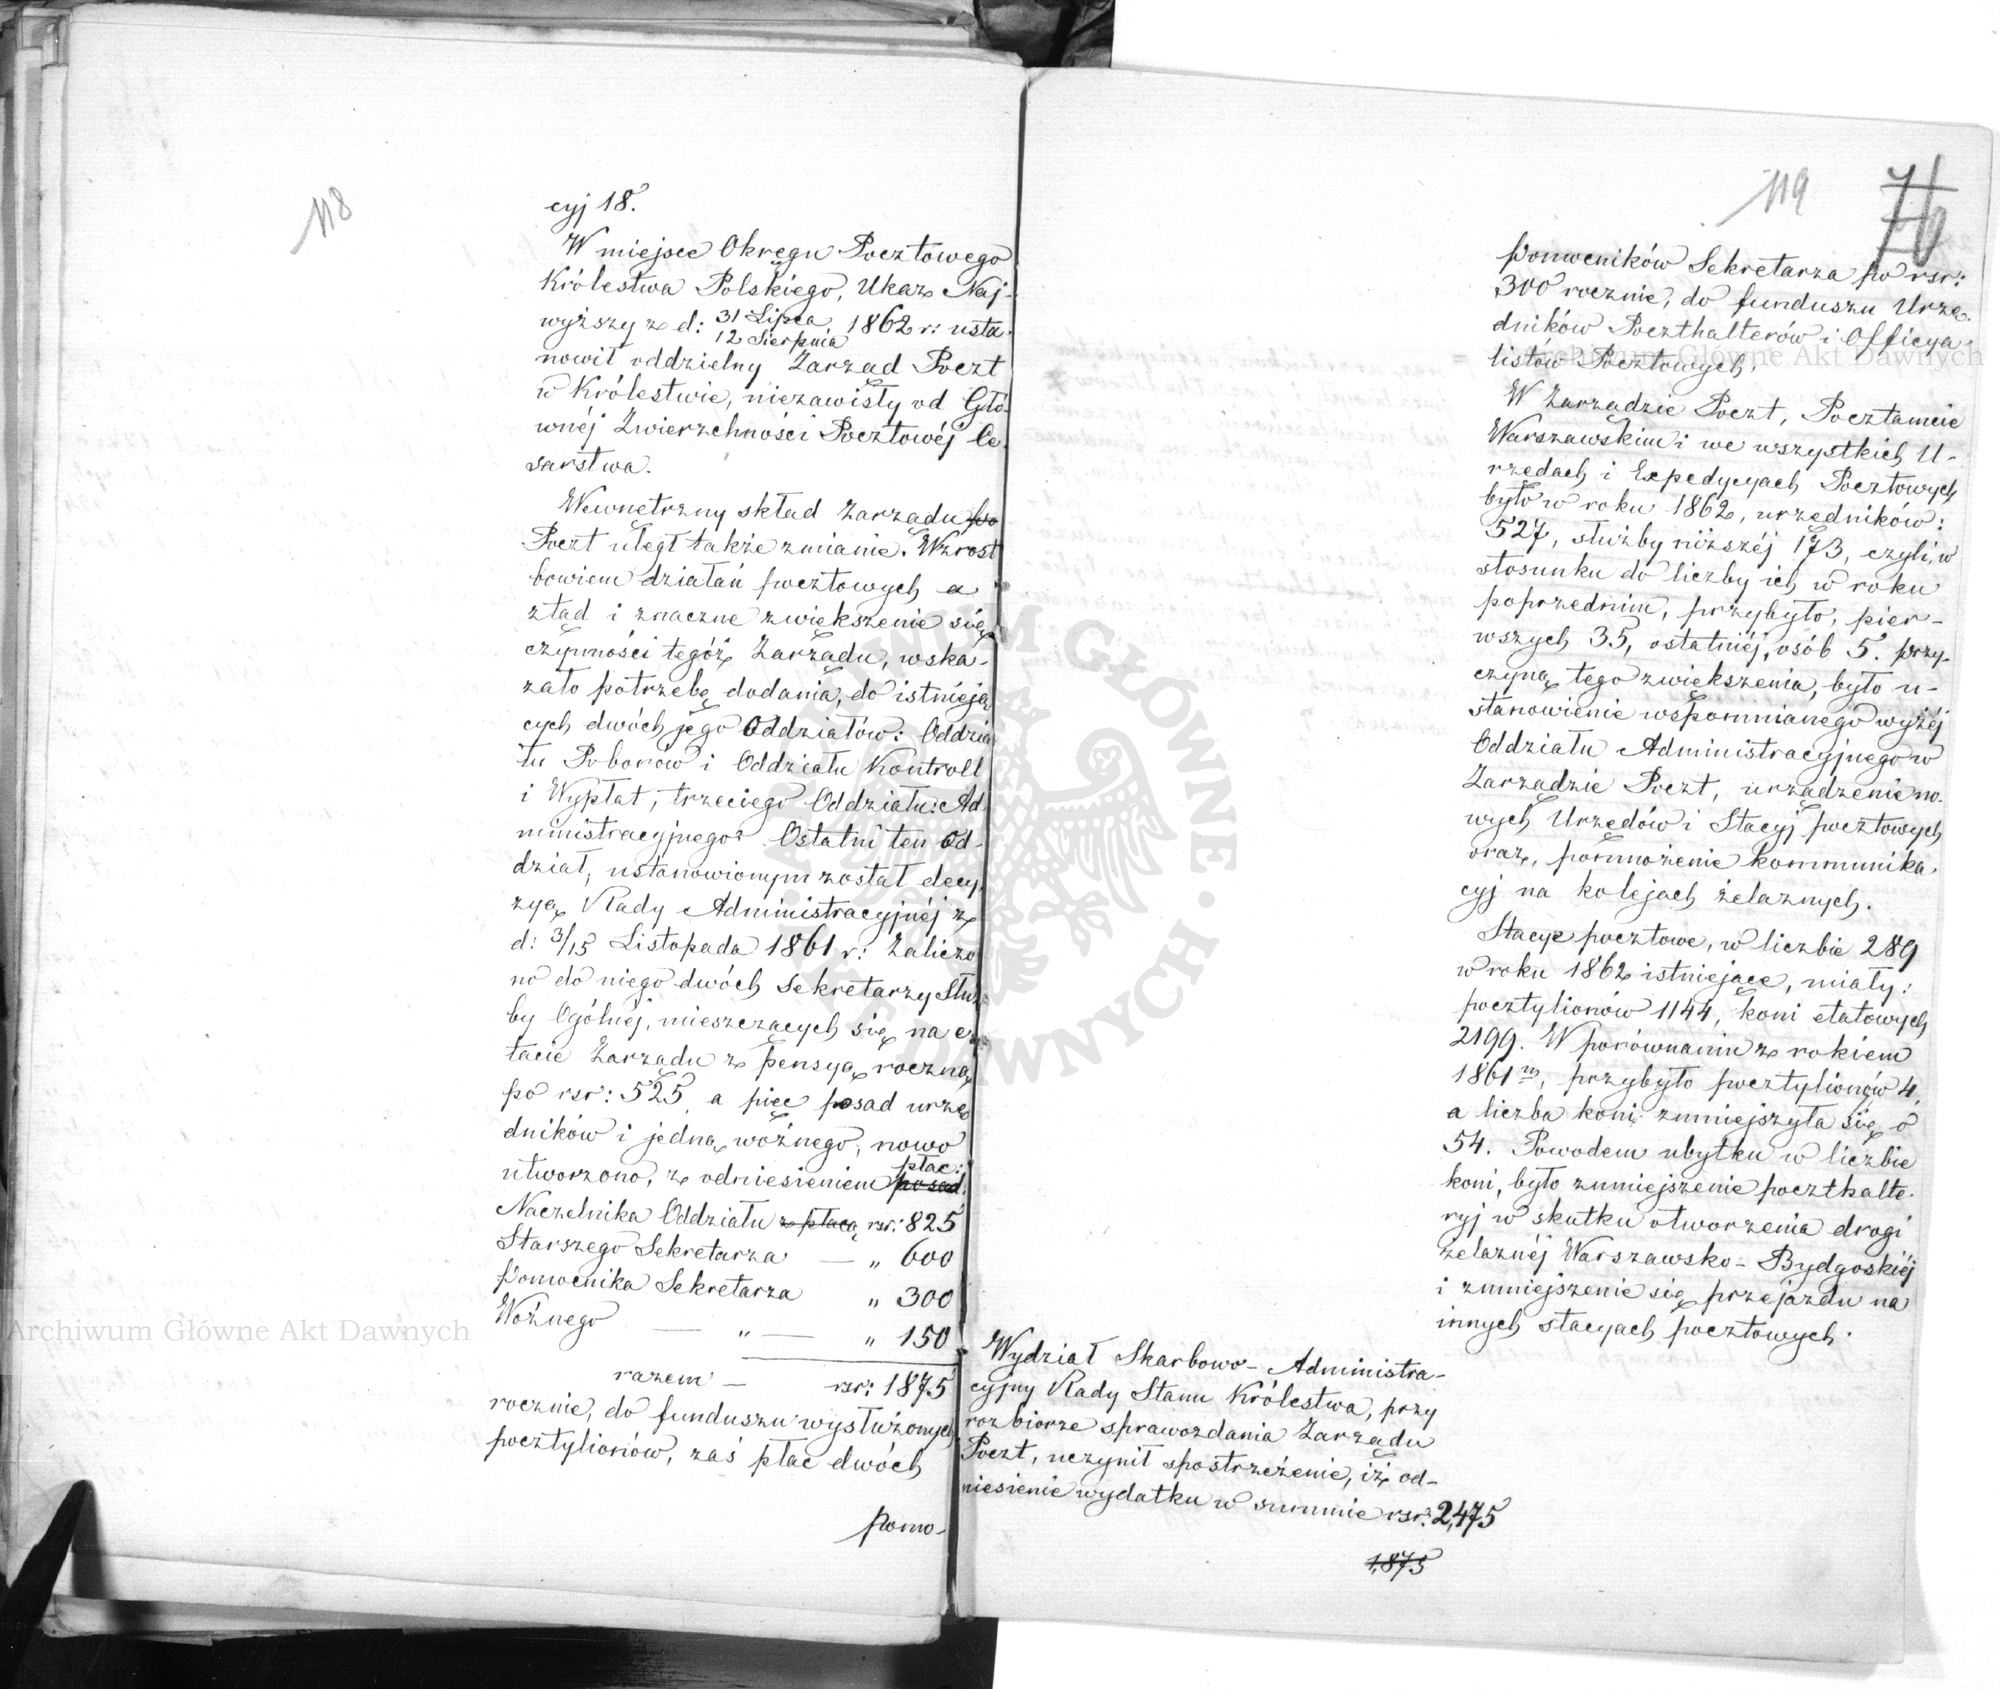 118
cyj 18.
W miejsce Okręgu Pocztowego
Królestwa Polskiego, Ukaz Naj-
wyższy z d: 31 Lipca / 12 Sierpnia 1862 r: usta-
nowił oddzielny Zarząd Poczt
w Królestwie, niezawisły od Głó-
wnéj Zwierzchności Pocztowéj Ce-
sarstwa.
Wewnętrzny skład Zarządu po
Poczt uległ także zmianie. Wzrost
bowiem działań pocztowych a
ztąd i znaczne zwiększenie się
czynności tegóż Zarządu, wska-
zało potrzebę dodania, do istnieją
cych dwóch jego Oddziałów: Oddzia
łu Poborów i Oddziału Kontroll
i Wypłat, trzeciego Oddziału: Ad-
ministracyjnego. Ostatni ten Od-
dział, ustanowionym został decy-
zyą Rady Administracyjnéj z
d: 3/15 Listopada 1861 r: Zaliczo
no do niego dwóch Sekretarzy Służ
by Ogólnéj, mieszczących się na e-
tacie Zarządu z pensyą roczną
po rsr: 525, a pięć posad urzę
dników i jedną woźnego, nowo
utworzono, z odniesieniem posad: płac:
Naczelnika Oddziału z płacą rsr: 825
Starszego Sekretarza — „ 600
Pomocnika Sekretarza „ 300
Woźnego — „ — „ 150
razem — rsr: 1875
rocznie, do funduszu wysłużonych
pocztylionów, zaś płac dwóch
pomo-
119
76
Pomocników Sekretarza po rsr:
300 rocznie, do funduszu Urzę-
dników Poczthalterów i Officya-
listów Pocztowych.
W Zarządzie Poczt, Pocztamcie
Warszawskim i we wszystkich U-
rzędach i Expedycyach Pocztowych
było w roku 1862, urzędników:
527, służby niższéj 173, czyli, w
stosunku do liczby ich w roku
poprzednim, przybyło, pier-
wszych 35, ostatniéj, osób 5. Przy-
czyną tego zwiększenia, było u-
stanowienie wspomnianego wyżéj
Oddziału Administracyjnego w
Zarządzie Poczt, urządzenie no-
wych Urzędów i Stacyj pocztowych
oraz, pomnożenie kommunika-
cyj na kolejach żelaznych.
Stacye pocztowe, w liczbie 289
w roku 1862 istniejące, miały:
pocztylionów 1144, koni etatowych
2199. W porównaniu z rokiem
1861m, przybyło pocztylionów 4,
a liczba koni zmniejszyła się o
54. Powodem ubytku w liczbie
koni, było zmniejszenie poczthalte-
ryj w skutku otworzenia drogi
żelaznéj Warszawsko-Bydgoskiéj
i zmniejszenie się przejazdu na
innych stacyach pocztowych.
Wydział Skarbowo-Administra-
cyjny Rady Stanu Królestwa, przy
rozbiorze sprawozdania Zarządu
Poczt, uczynił spostrzeżenie, iż od-
niesienie wydatku w summie rsr: 2,475
1,875
Archiwum Główne Akt Dawnych
Archiwum Główne Akt Dawnych
ARCHIWUM GŁÓWNE AKT DAWNYCH